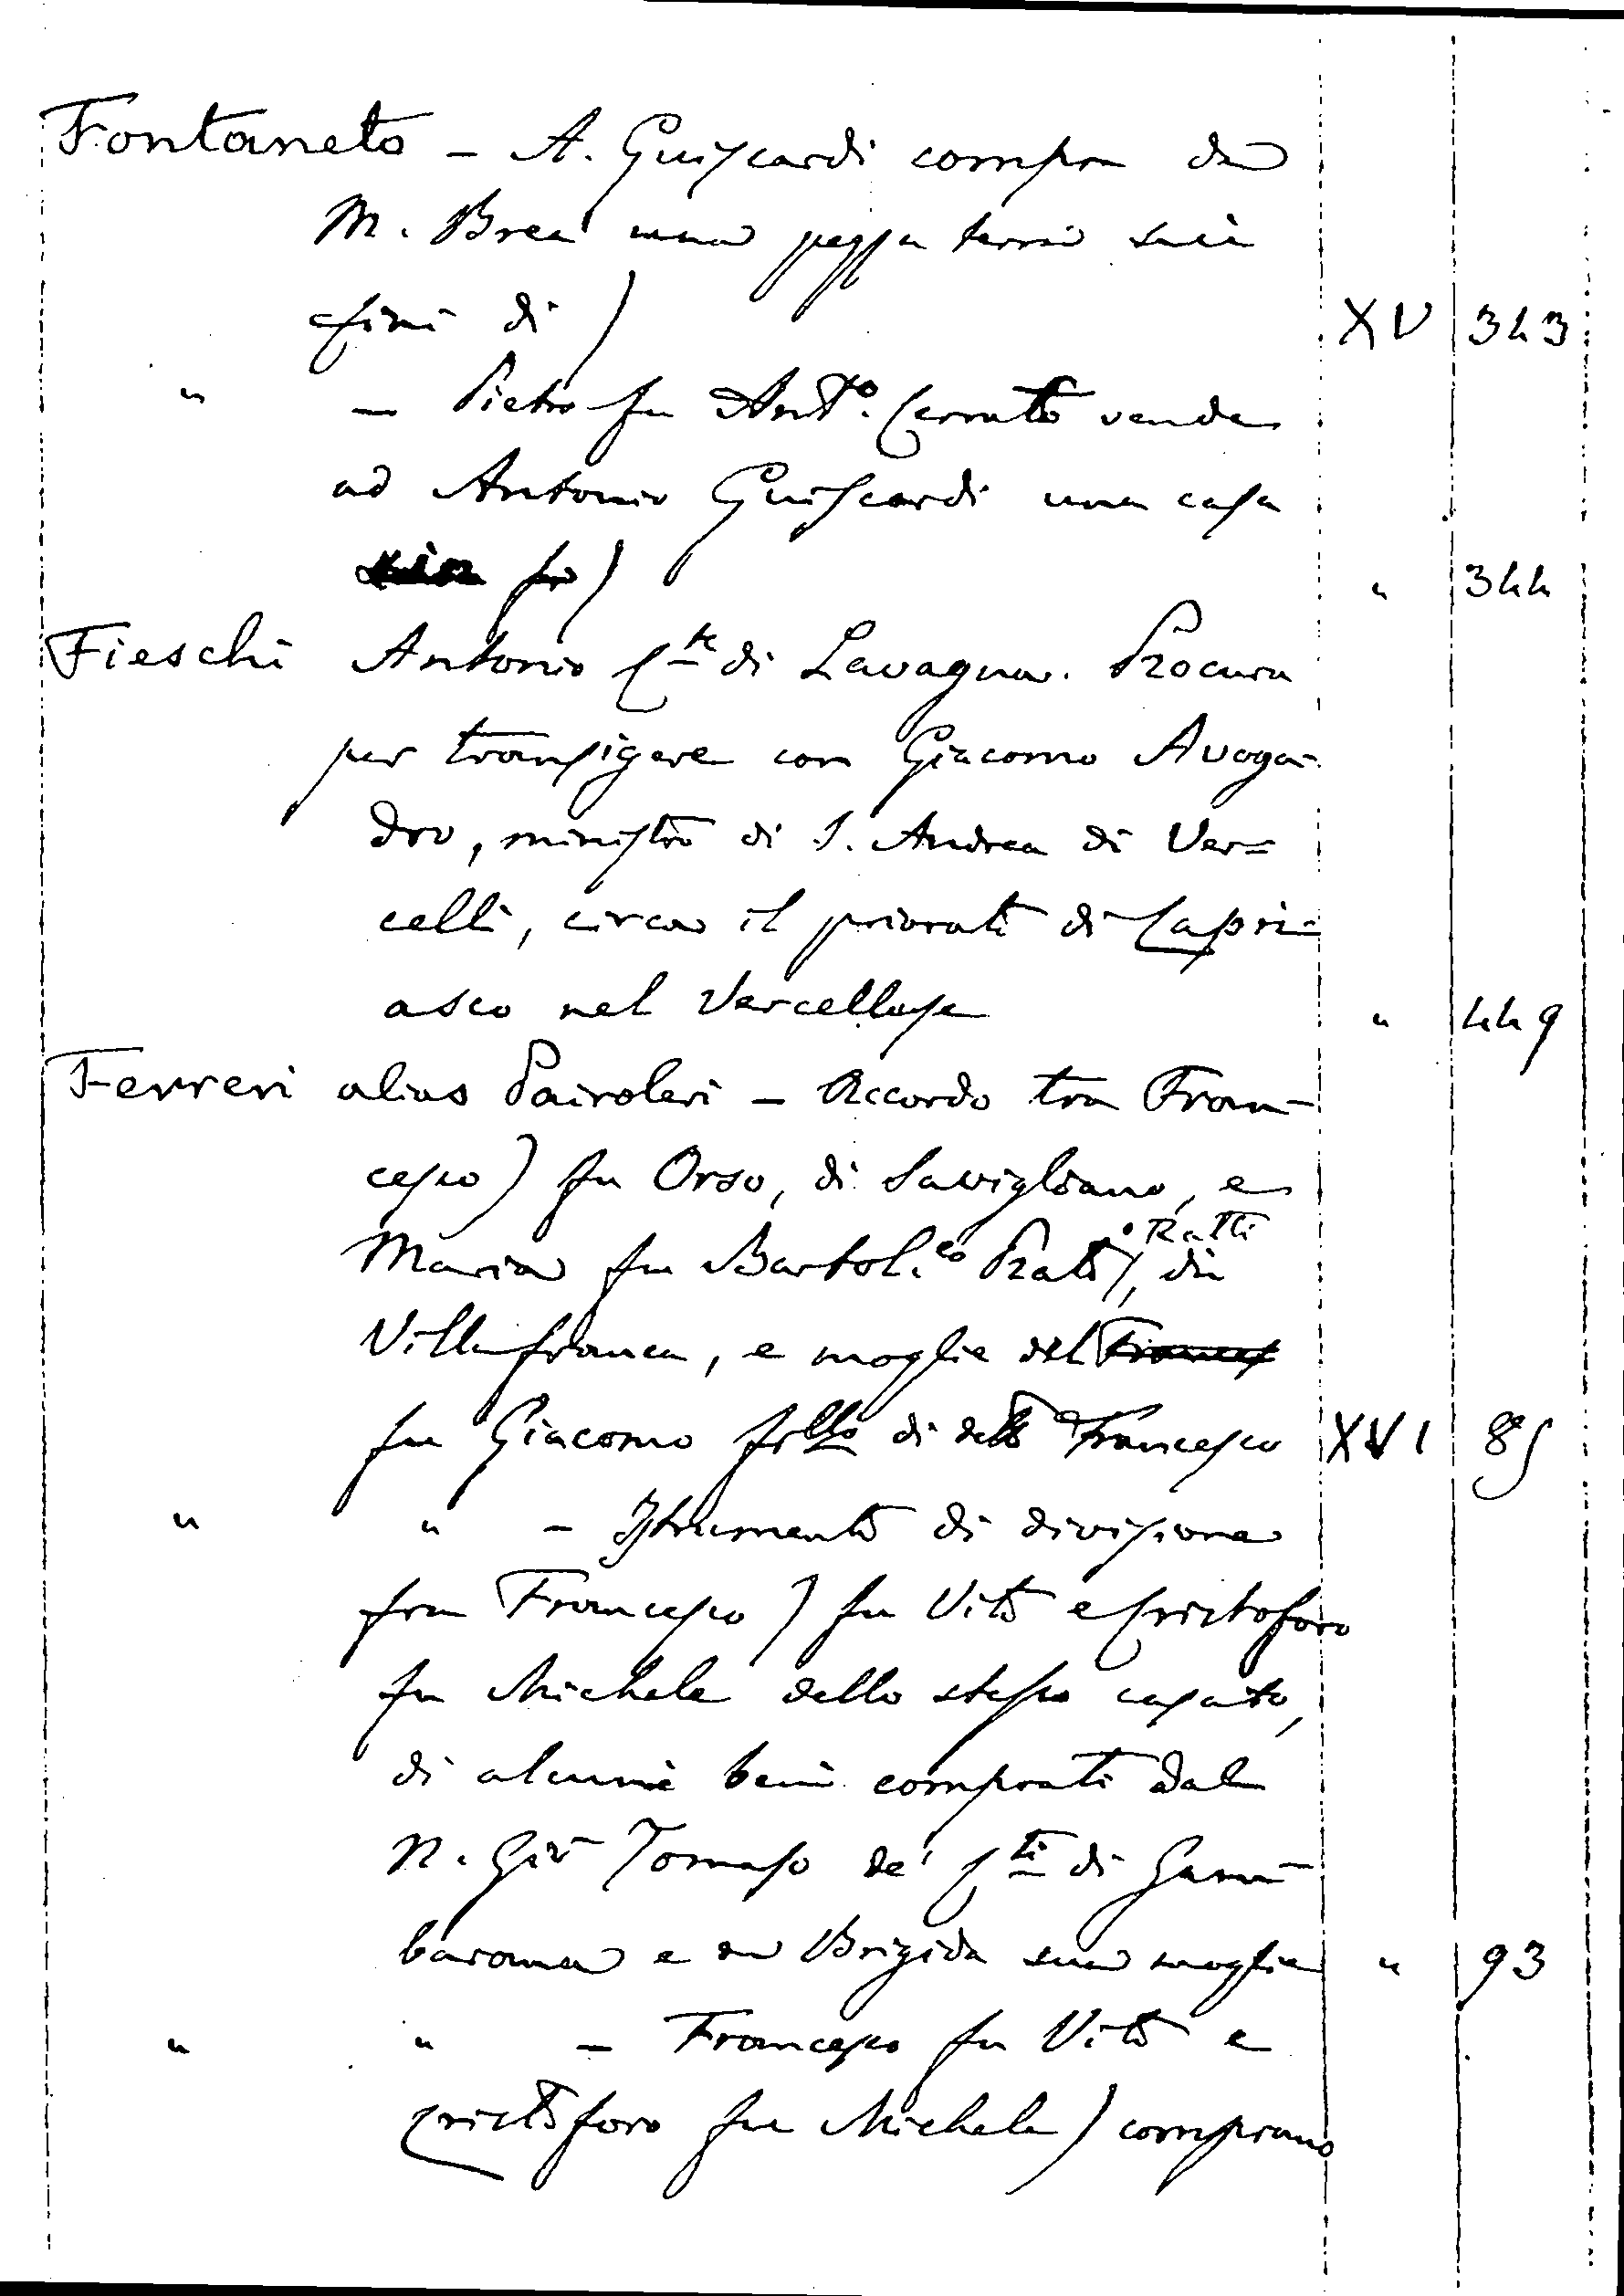 Fontaneto – A. Guiscardi compra da
M. Brea una pezza terra sui
fini di) XV 343
" – Pietro fu Ant.º Cerrato vende
ad Antonio Guiscardi una casa
fu) " 344
Fieschi Antonio C.te di Lavagna. Procura
per transigere con Giacomo Avoga-
dro, ministro di S. Andrea di Ver=
celli, circa il priorato di Capri=
asco nel Vercellese " 449
Ferreri alias Pairoleri – Accordo tra Fran-
cesco) fu Orso, di Savigliano, e
Maria fu Bartol.eo Prati, o Ratti, di
Villafranca, e moglie del Frances
fu Giacomo figlio di detto Francesco XVI 85
" " – Istrumento di divisione
fra Francesco) fu Vito e Cristoforo
fu Michele dello stesso casato,
di alcuni beni comprati dal
N. Giō Tomaso de' C.ti di Gam-
barana e da Brigida sua moglie " 93
" " – Francesco fu Vito e
Cristoforo fu Michele) comprano